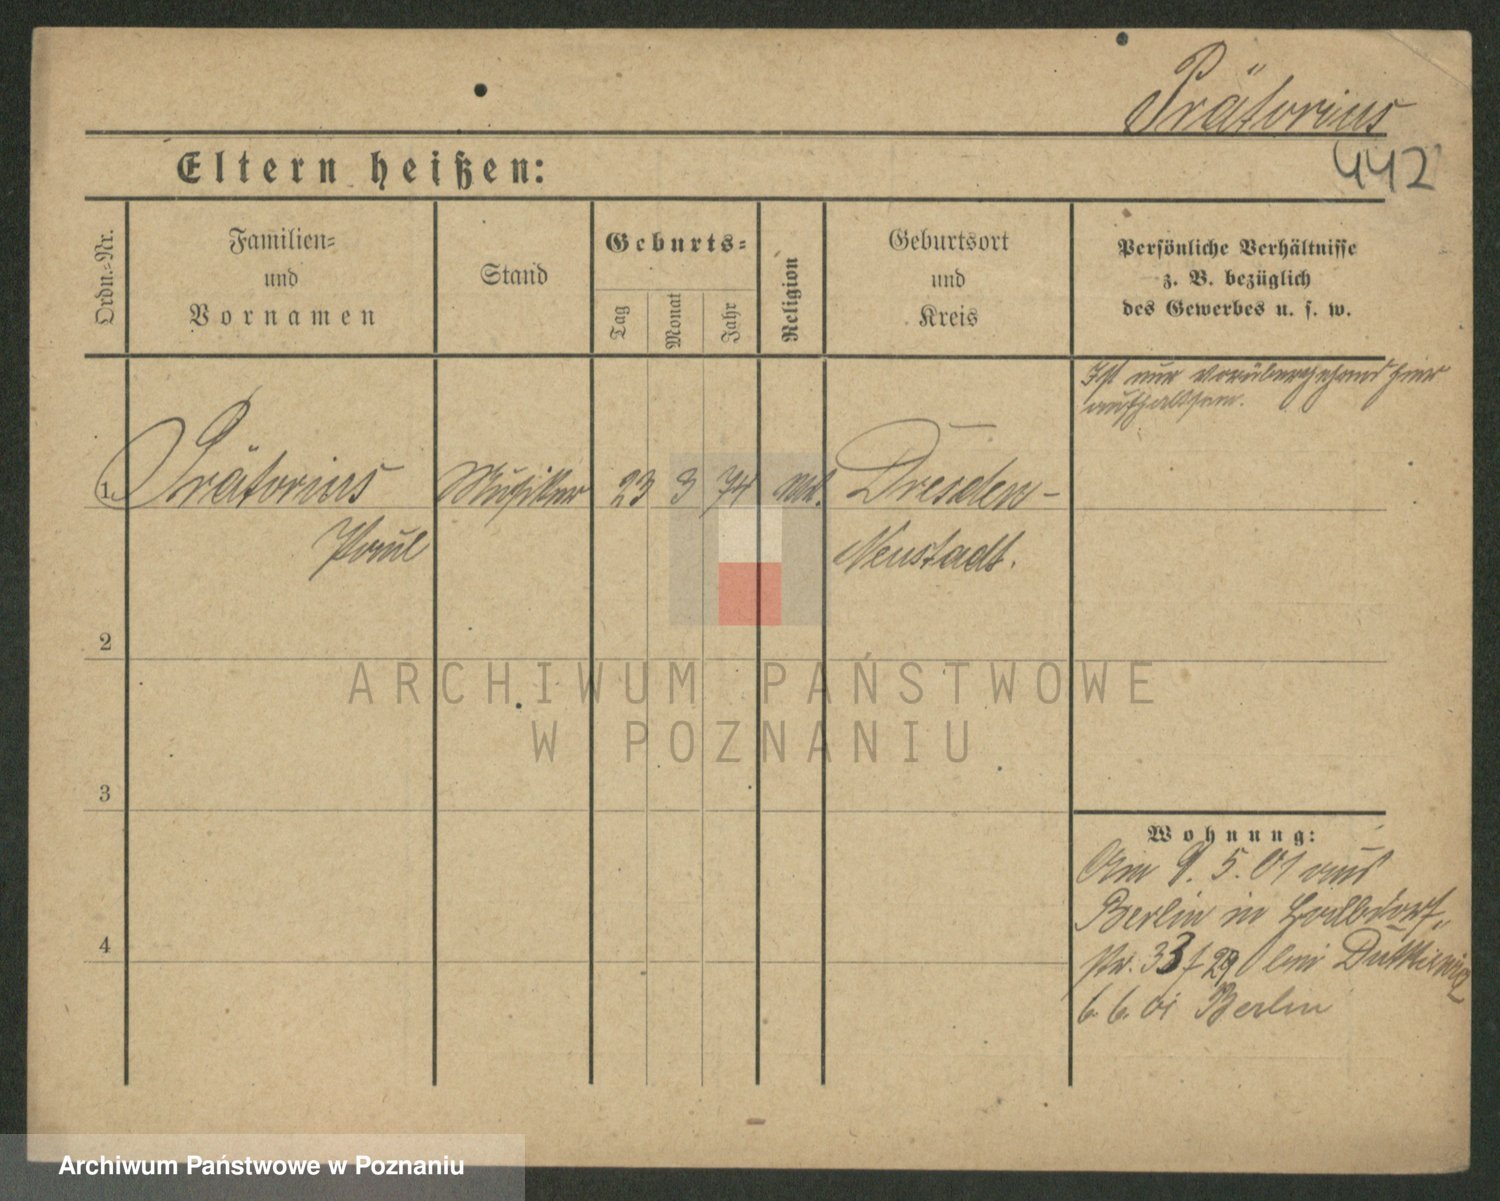 Prätorius
442
Eltern heißen:
Ordn.=Nr.
Familien=
und
Vornamen
Stand
Geburts=
Tag
Monat
Jahr
Religion
Geburtsort
und
Kreis
Persönliche Verhältnisse
z. B. bezüglich
des Gewerbes u. s. w.
Ist nur vorübergehend hier
aufhaltsam.
1. Prätorius Musiker 23 3 74 Dresden-
Paul Neustadt.
2
3
4
Wohnung:
Am 9. 5. 01 aus
Berlin in
33 / 29 bei
6. 6. 01 Berlin
ARCHIWUM PAŃSTWOWE
W POZNANIU
Archiwum Państwowe w Poznaniu